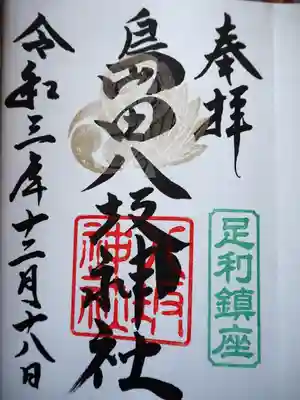 奉拝
足利鎮座
島田八坂神社
八坂神社
令和三年十二月十八日